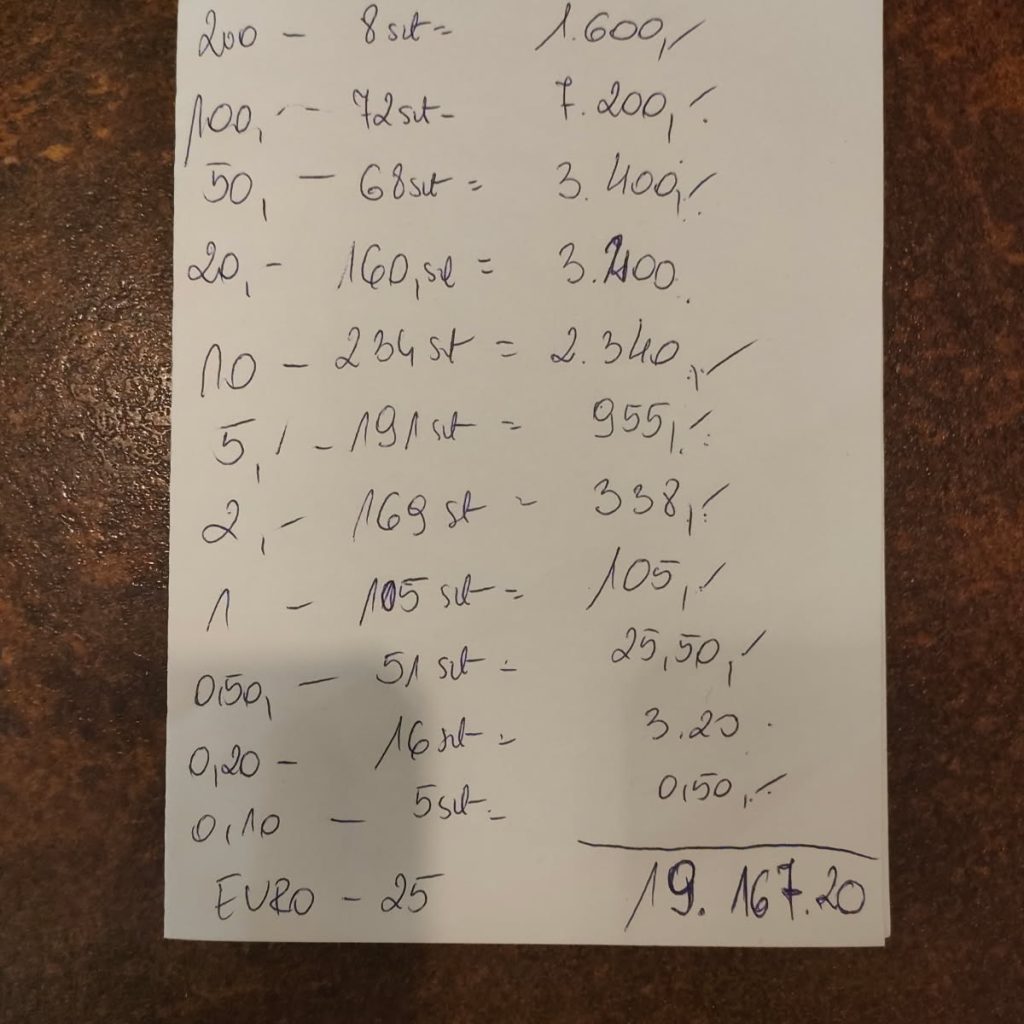 200 - 8 szt = 1.600,-
100,- - 72 szt - 7.200,-
50, - 68 szt = 3.400,-
20, - 160, szt = 3.200
10 - 234 szt = 2.340,-
5,- - 191 szt = 955,-
2,- 169 szt = 338,-
1 - 105 szt = 105,-
0,50, - 51 szt = 25,50,-
0,20 - 16 szt = 3.20
0,10 - 5 szt = 0,50,-
EURO - 25 19.167.20